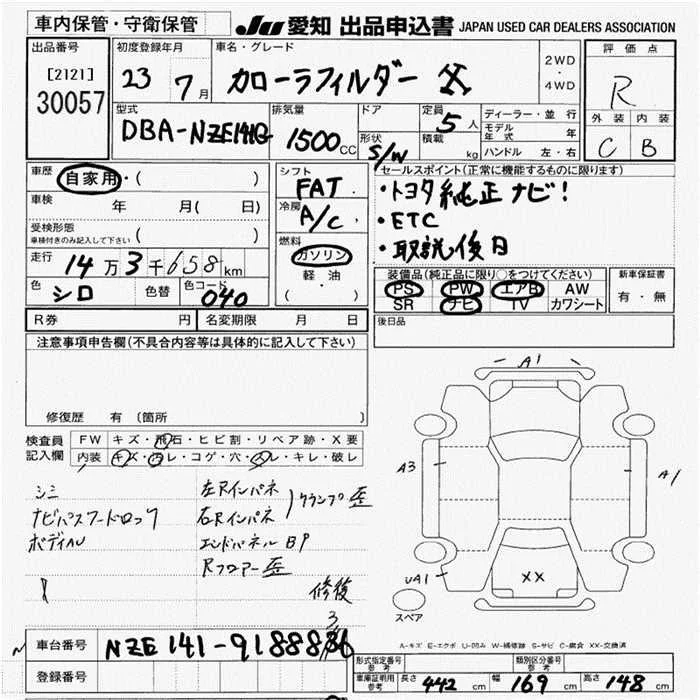 車内保管・守衛保管
JU 愛知 出品申込書 JAPAN USED CAR DEALERS ASSOCIATION
出品番号
[2121]
30057
初度登録年月
23 7月
車名・グレード
カローラフィルダー X
2WD
・
4WD
評価点
R
外装 内装
C B
型式
DBA-NZE141G
排気量
1500 CC
ドア
形状
S/W
定員
5人
積載
kg
ディーラー・並行
モデル年式 年
ハンドル 左・右
車歴 自家用・( )
車検 年 月( 日)
受検形態
車検付きのみ記入して下さい ( )
走行 14万3千658km
色 シロ 色替 色コード 040
シフト
FAT
冷房
A/C
燃料
ガソリン
軽・油
( ・ )
セールスポイント(正常に機能するものに限ります)
・トヨタ純正ナビ!
・ETC
・取説後日
装備品(純正品に限り○をつけてください)
PS PW エアB AW
SR ナビ TV カワシート
新車保証書
有・無
R券 円 名変期限 月 日
後日品
注意事項申告欄(不具合内容等は具体的に記入して下さい)
修復歴 有 〔箇所 〕
検査員
記入欄
FW キズ・飛石・ヒビ割・リペア跡・X要
内装 キズ・汚レ・コゲ・穴・スレ・キレ・破レ
シミ
ナビパスワードロック
ボディAU
左Rインパネ
右Rインパネ
クランプ歪
エンドパネルBP
Rフロアー歪
修後
A1
A3
A1
UA1
XX
スペア
A-キズ E-エクボ U-凹み W-補修跡 S-サビ C-腐食 XX-交換済
車台番号 NZE141-9188886
3
登録番号
形式指定番号
参考
類別区分番号
参考
車庫証明用
参考
長さ 442 cm 幅 169 cm 高さ 148 cm